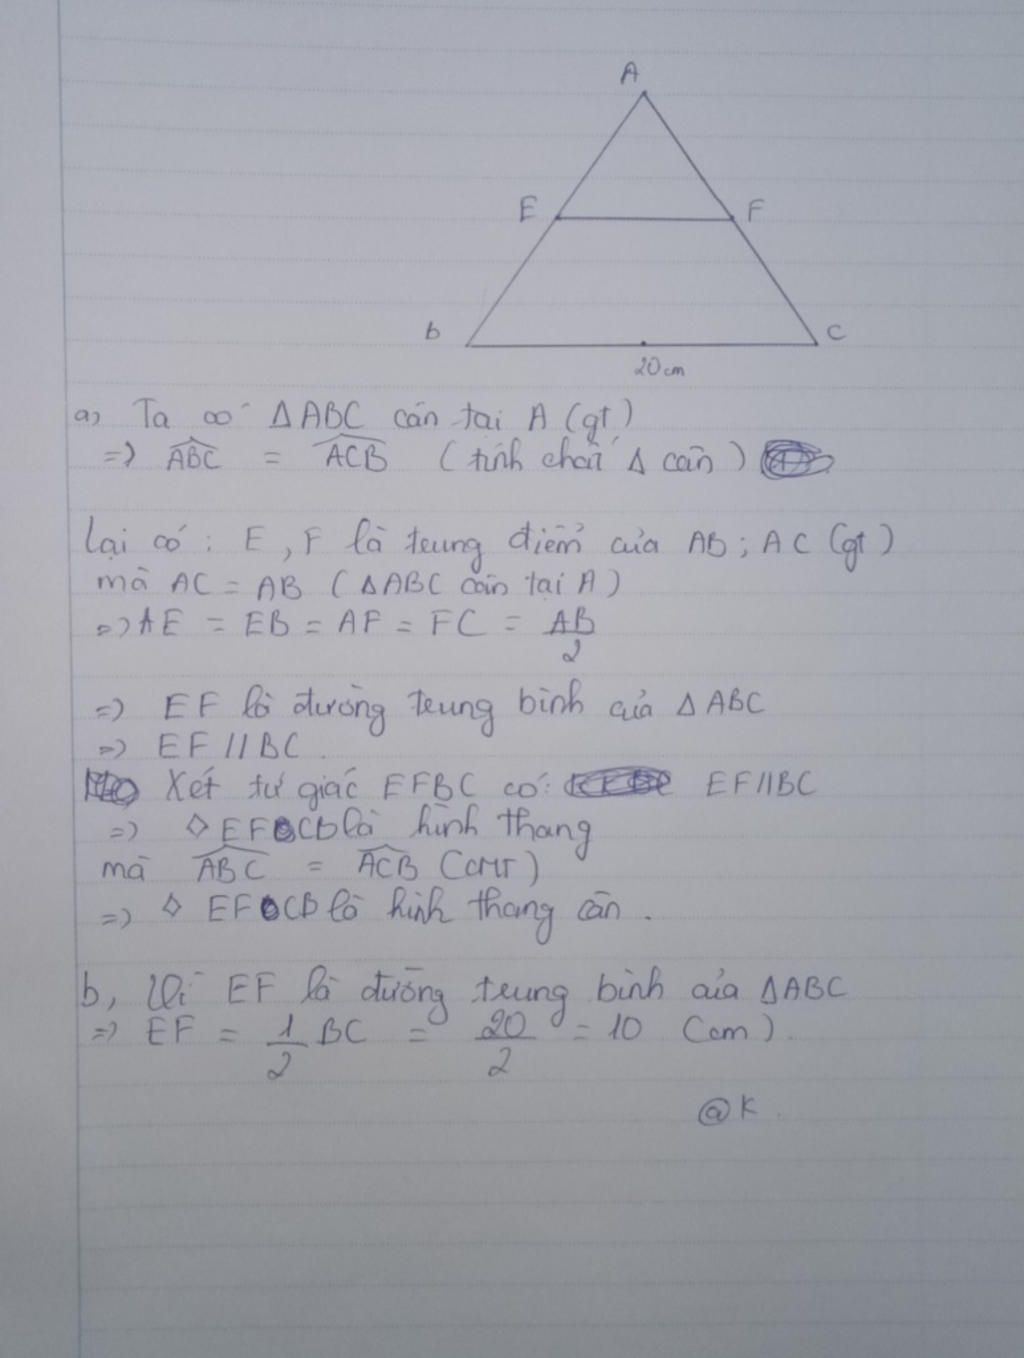 A
E
F
b
C
20cm
a, Ta có ΔABC cân tại A (gt)
=> ABC = ACB (tính chất Δ cân)
Lại có: E, F là trung điểm của AB; AC (gt)
mà AC = AB (ΔABC cân tại A)
=> AE = EB = AF = FC = AB/2
=> EF là đường trung bình của ΔABC
=> EF // BC.
Xét tứ giác EFBC có: EF//BC
=> ◇ EFCB là hình thang
mà ABC = ACB (cmt)
=> ◇ EFCB là hình thang cân.
b, Vì EF là đường trung bình của ΔABC
=> EF = 1/2 BC = 20/2 = 10 (cm).
@K.